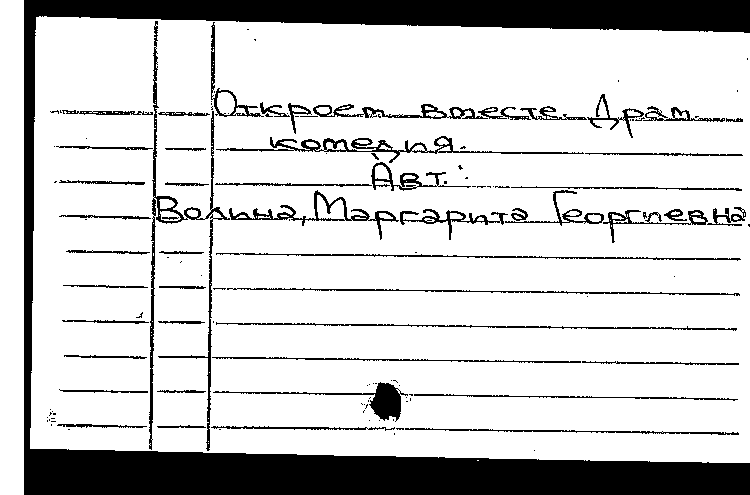 Откроем вместе. Драм.
комедия.
Авт.:
Волина, Маргарита Георгиевна